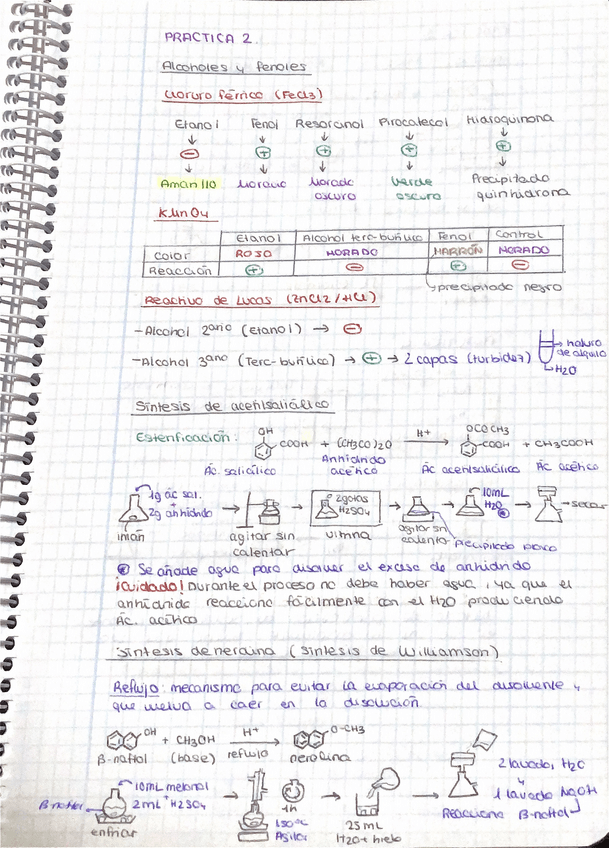 PRACTICA 2.
Alcoholes y fenoles
Cloruro férrico (FeCl3)
Etanol Fenol Resorcinol Pirocatecol Hidroquinona
↓ ↓ ↓ ↓ ↓
⊖ ⊕ ⊕ ⊕ ⊕
↓ ↓ ↓ ↓ ↓
Amarillo Morado Morado oscuro Verde oscuro Precipitado quinhidrona
KMnO4
Etanol Alcohol terc-butílico Fenol Control
Color ROSO MORADO MARRÓN MORADO
Reacción ⊕ ⊖ ⊕ ⊖
↳precipitado negro
Reactivo de Lucas (ZnCl2/HCl)
-Alcohol 2ario (Etanol) → ⊖
-Alcohol 3ario (Terc-butílico) → ⊕ → 2 capas (turbidez)
→ haluro de alquilo
↳H2O
Síntesis de acetilsalicílico
Esterificación:
OH
COOH + (CH3CO)2O H+ → OCOCH3 COOH + CH3COOH
Ác. salicílico Anhídrido acético Ác acetilsalicílico Ác acético
1g ác sal.
2g anhídrido
imán
agitar sin calentar
2gotas H2SO4
vitrina
agitar sin calentar
precipitado blanco
10mL H2O
→ secar
Se añade agua para disolver el exceso de anhídrido
¡Cuidado! Durante el proceso no debe haber agua, ya que el
anhídrido reacciona fácilmente con el H2O produciendo
Ác. acético
Síntesis de nerolina (síntesis de Williamson)
Reflujo: mecanismo para evitar la evaporación del disolvente y
que vuelva a caer en la disolución.
OH + CH3OH H+ → O-CH3
β-naftol (base) reflujo nerolina
β-naftol
10mL metanol
2mL H2SO4
enfriar
1h
150ºC
Agitar
25 mL
H2O + hielo
2 lavado, H2O
y
1 lavado NaOH
Reacciona β-naftol